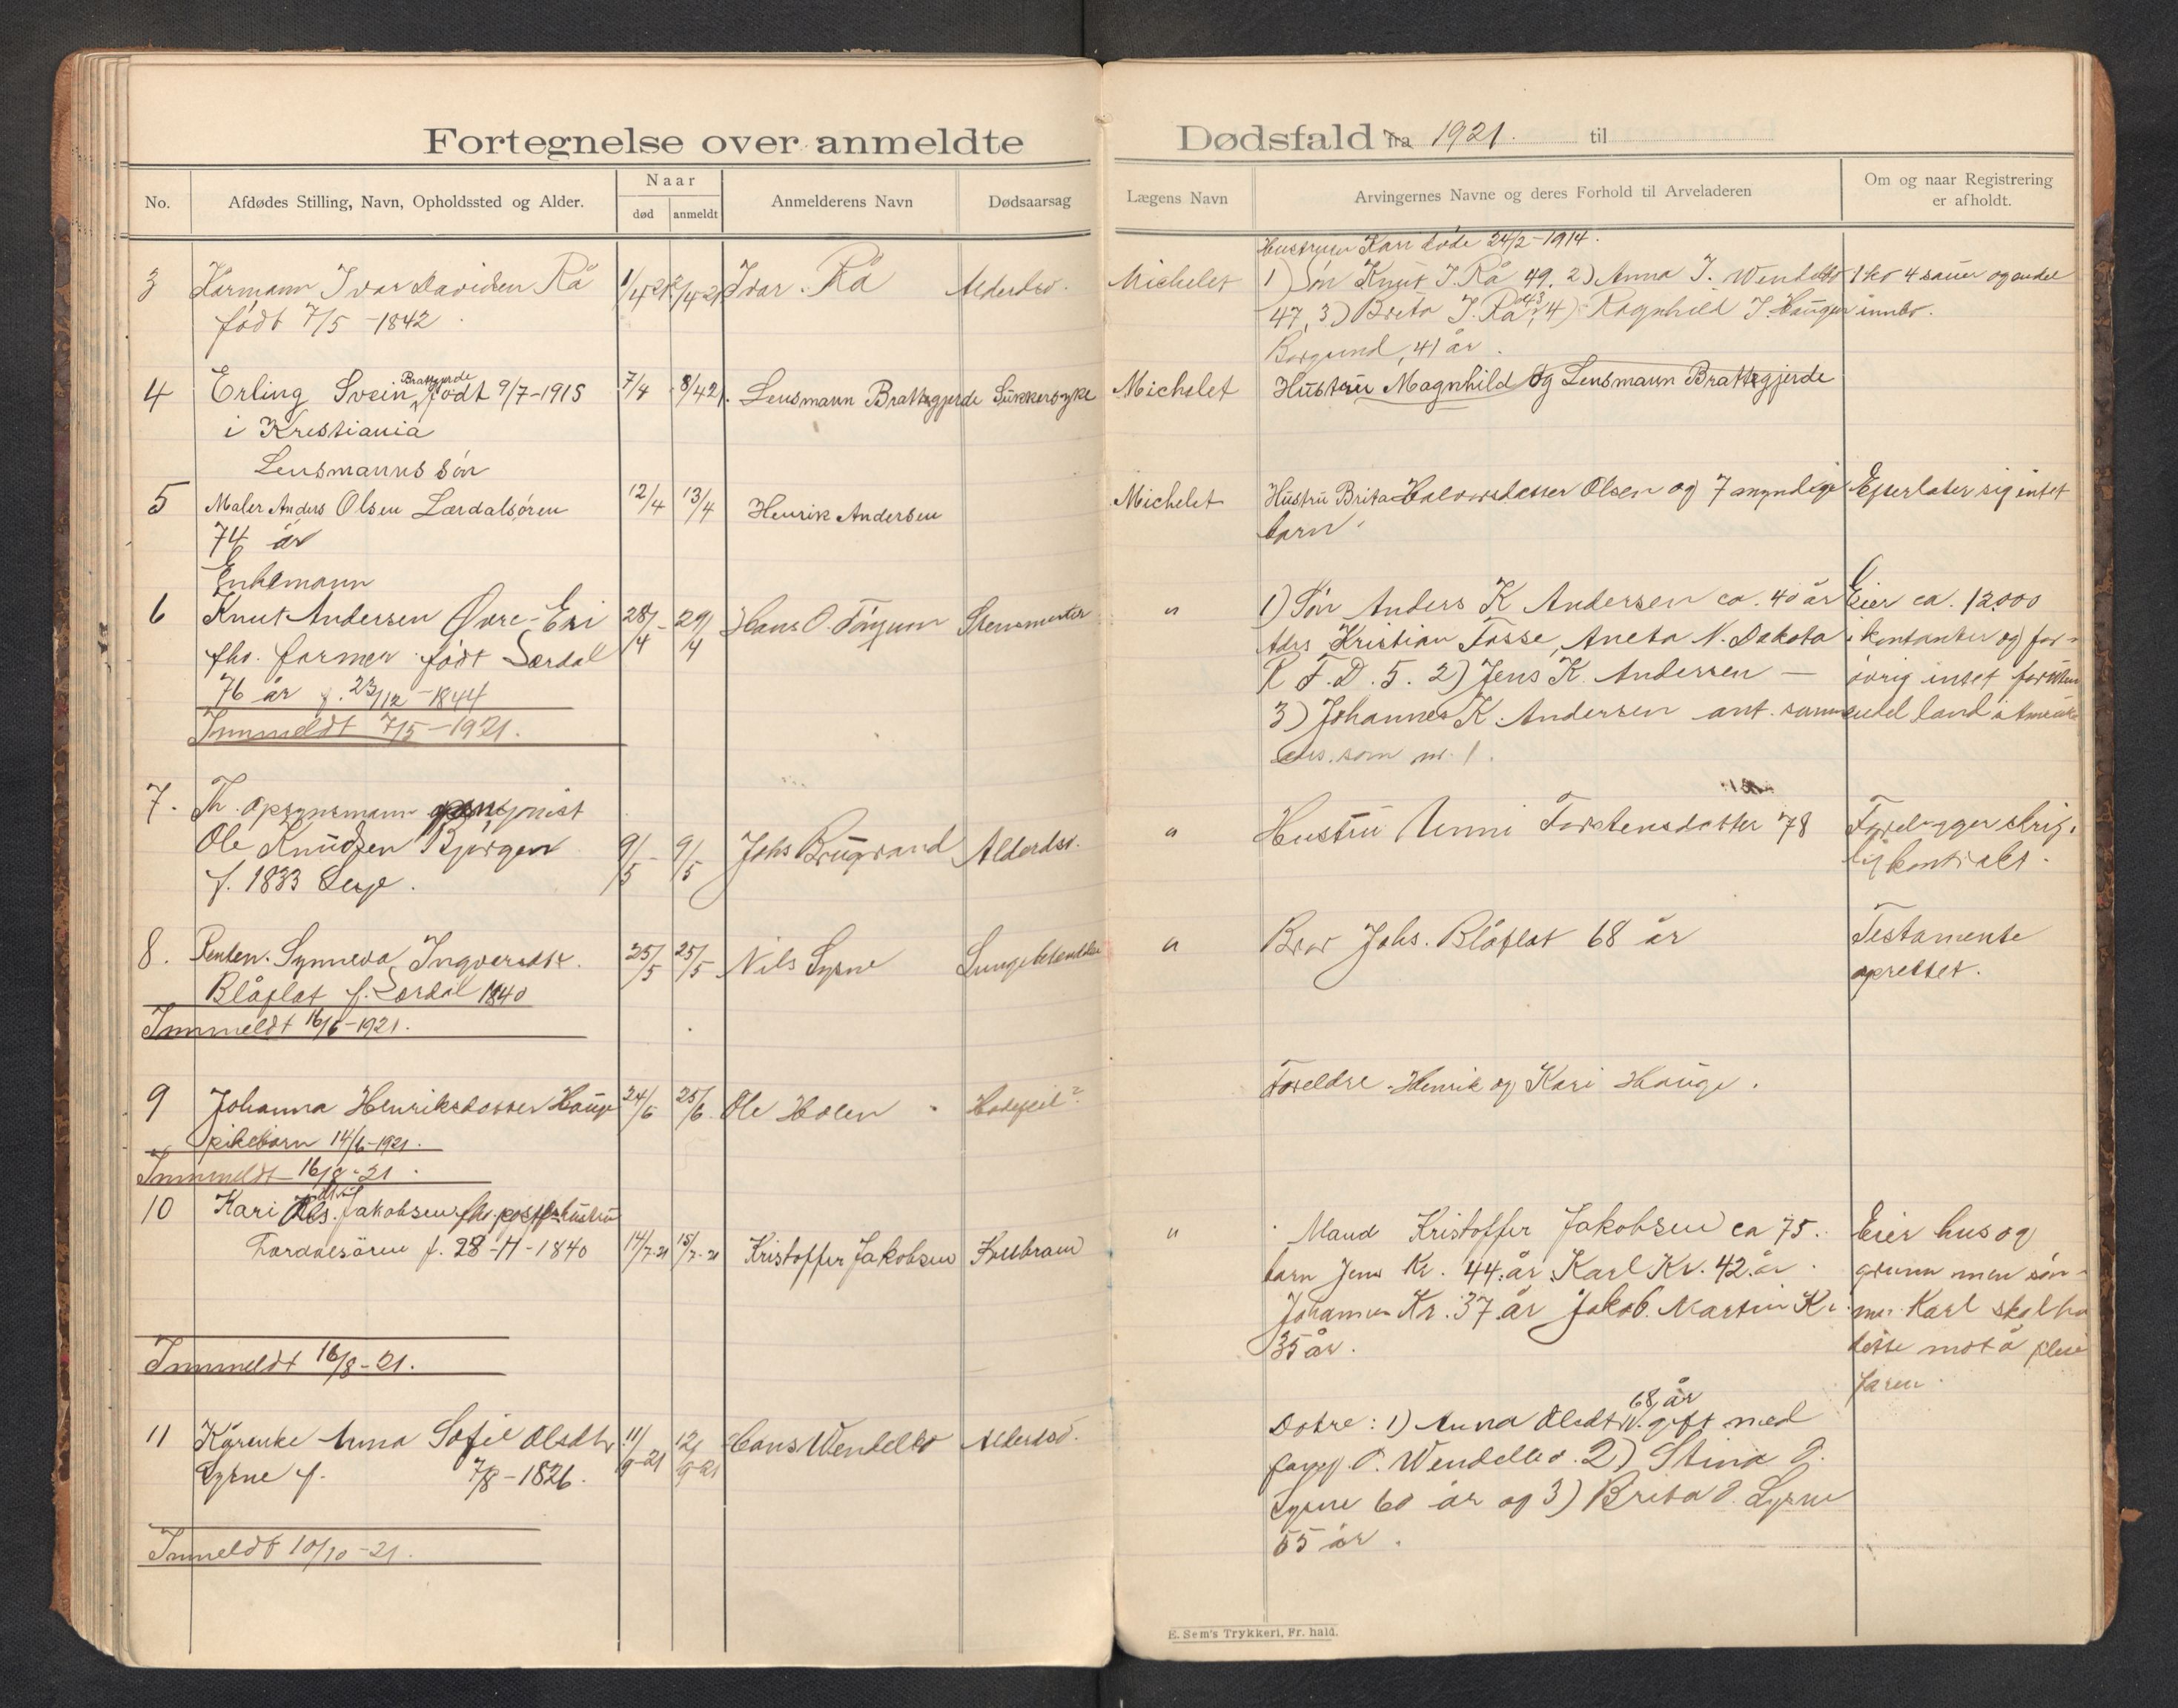 Fortegnelse over anmeldte
Dødsfald fra 1921. til
No.
Afdødes Stilling, Navn, Opholdssted og Alder.
Naar
død
anmeldt
Anmelderens Navn
Dødsaarsag
Lægens Navn
Arvingernes Navne og deres Forhold til Arveladeren
Om og naar Registrering
er afholdt.
3
Kårmann Ivar Davidsen Rå
født 7/5 - 1842
1/4 21
2/4-21
Ivar Rå
Alderdso.
Michelet
Hustruen Kari døde 24/2-1914.
1) Søn Knut I. Rå 49. 2) Anna I. Wendelbo
47, 3) Brita I. Rå 43, 4) Ragnhild I. Haugen
Borgund, 41 år.
1 ko 4 sauer og endel
innbo.
4
Erling Svein Brattegjerde født 9/7-1915
i Kristiania
Lensmanns søn
7/4
8/4 21.
Lensmann Brattegjerde
Sukkersyke
Michelet
Hustru Magnhild og Lensmann Brattegjerde
5
Maler Anders Olsen Lærdalsøren
74 år
12/4
13/4
Henrik Andersen
Michelet
Hustru Brita Halvorsdatter Olsen og 7 myndige
barn.
Efterlater sig intet
6
Enkemann
Knut Andersen Øvre-Eri
fhv. farmer født Lærdal
76 år f. 23/12 - 1844
Innmeldt 7/5 - 1921.
28/4
29/4
Hans O. Tönjum
"
1) Søn Anders K Andersen ca. 40 år
Adrs Kristian Fosse, Aneta N. Dakota
R F. D. 5. 2) Jens K. Andersen —
3) Johannes K. Andersen ant. samme
adrs. som nr. 1.
Eier ca. 12000
i kontanter og for-
øvrig intet
endel land i Amerika
7.
Th. opsynsmann
Ole Knudsen Bjørgen
f. 1833
9/5
9/5
Johs Brugrand
Alderdso.
"
Hustru Unni Torstensdatter 78
Foreligger skrift-
lig kontrakt.
8.
Synneva Ingversdtr.
Blåflat f. Lærdal 1840
Innmeldt 16/6-1921.
25/5
25/5
Nils Lysne
Lungebetendelse
"
Bror Johs. Blåflat 68 år
Testamente
oprettet.
9
Johanna Henriksdatter Hauge
pikebarn 14/6-1921.
Innmeldt 16/8-21.
24/6
25/6.
Ole Holen
Foreldre Henrik og Kari Hauge.
10
Kari Jakobsen fhv. hustru
Lærdalsøren f. 28-11-1840
14/7-21
15/7-21
Kristoffer Jakobsen
Koldbrann
"
Mand Kristoffer Jakobsen ca 75.
barn Jens Kr. 44 år Karl Kr. 42 år
Johannes Kr. 37 år Jakob Martin Kr.
35 år.
Eier hus og
grunn men søn-
nen Karl skal ha
dette mot å pleie
faren.
Innmeldt 16/8-21.
11
Kårenke Anna Sofie Olsdtr
Lysne f. 7/8-1826.
11/9-21
12/9-21
Hans Wendelbo
Alderdso.
Døtre: 1) Anna Olsdtr W. 68 år gift med
O. Wendelbo. 2) Stina O.
Lysne 60 år og 3) Brita O. Lysne
55 år.
Inmeldt 10/10-21.
E. Sem's Trykkeri, Fr. hald.